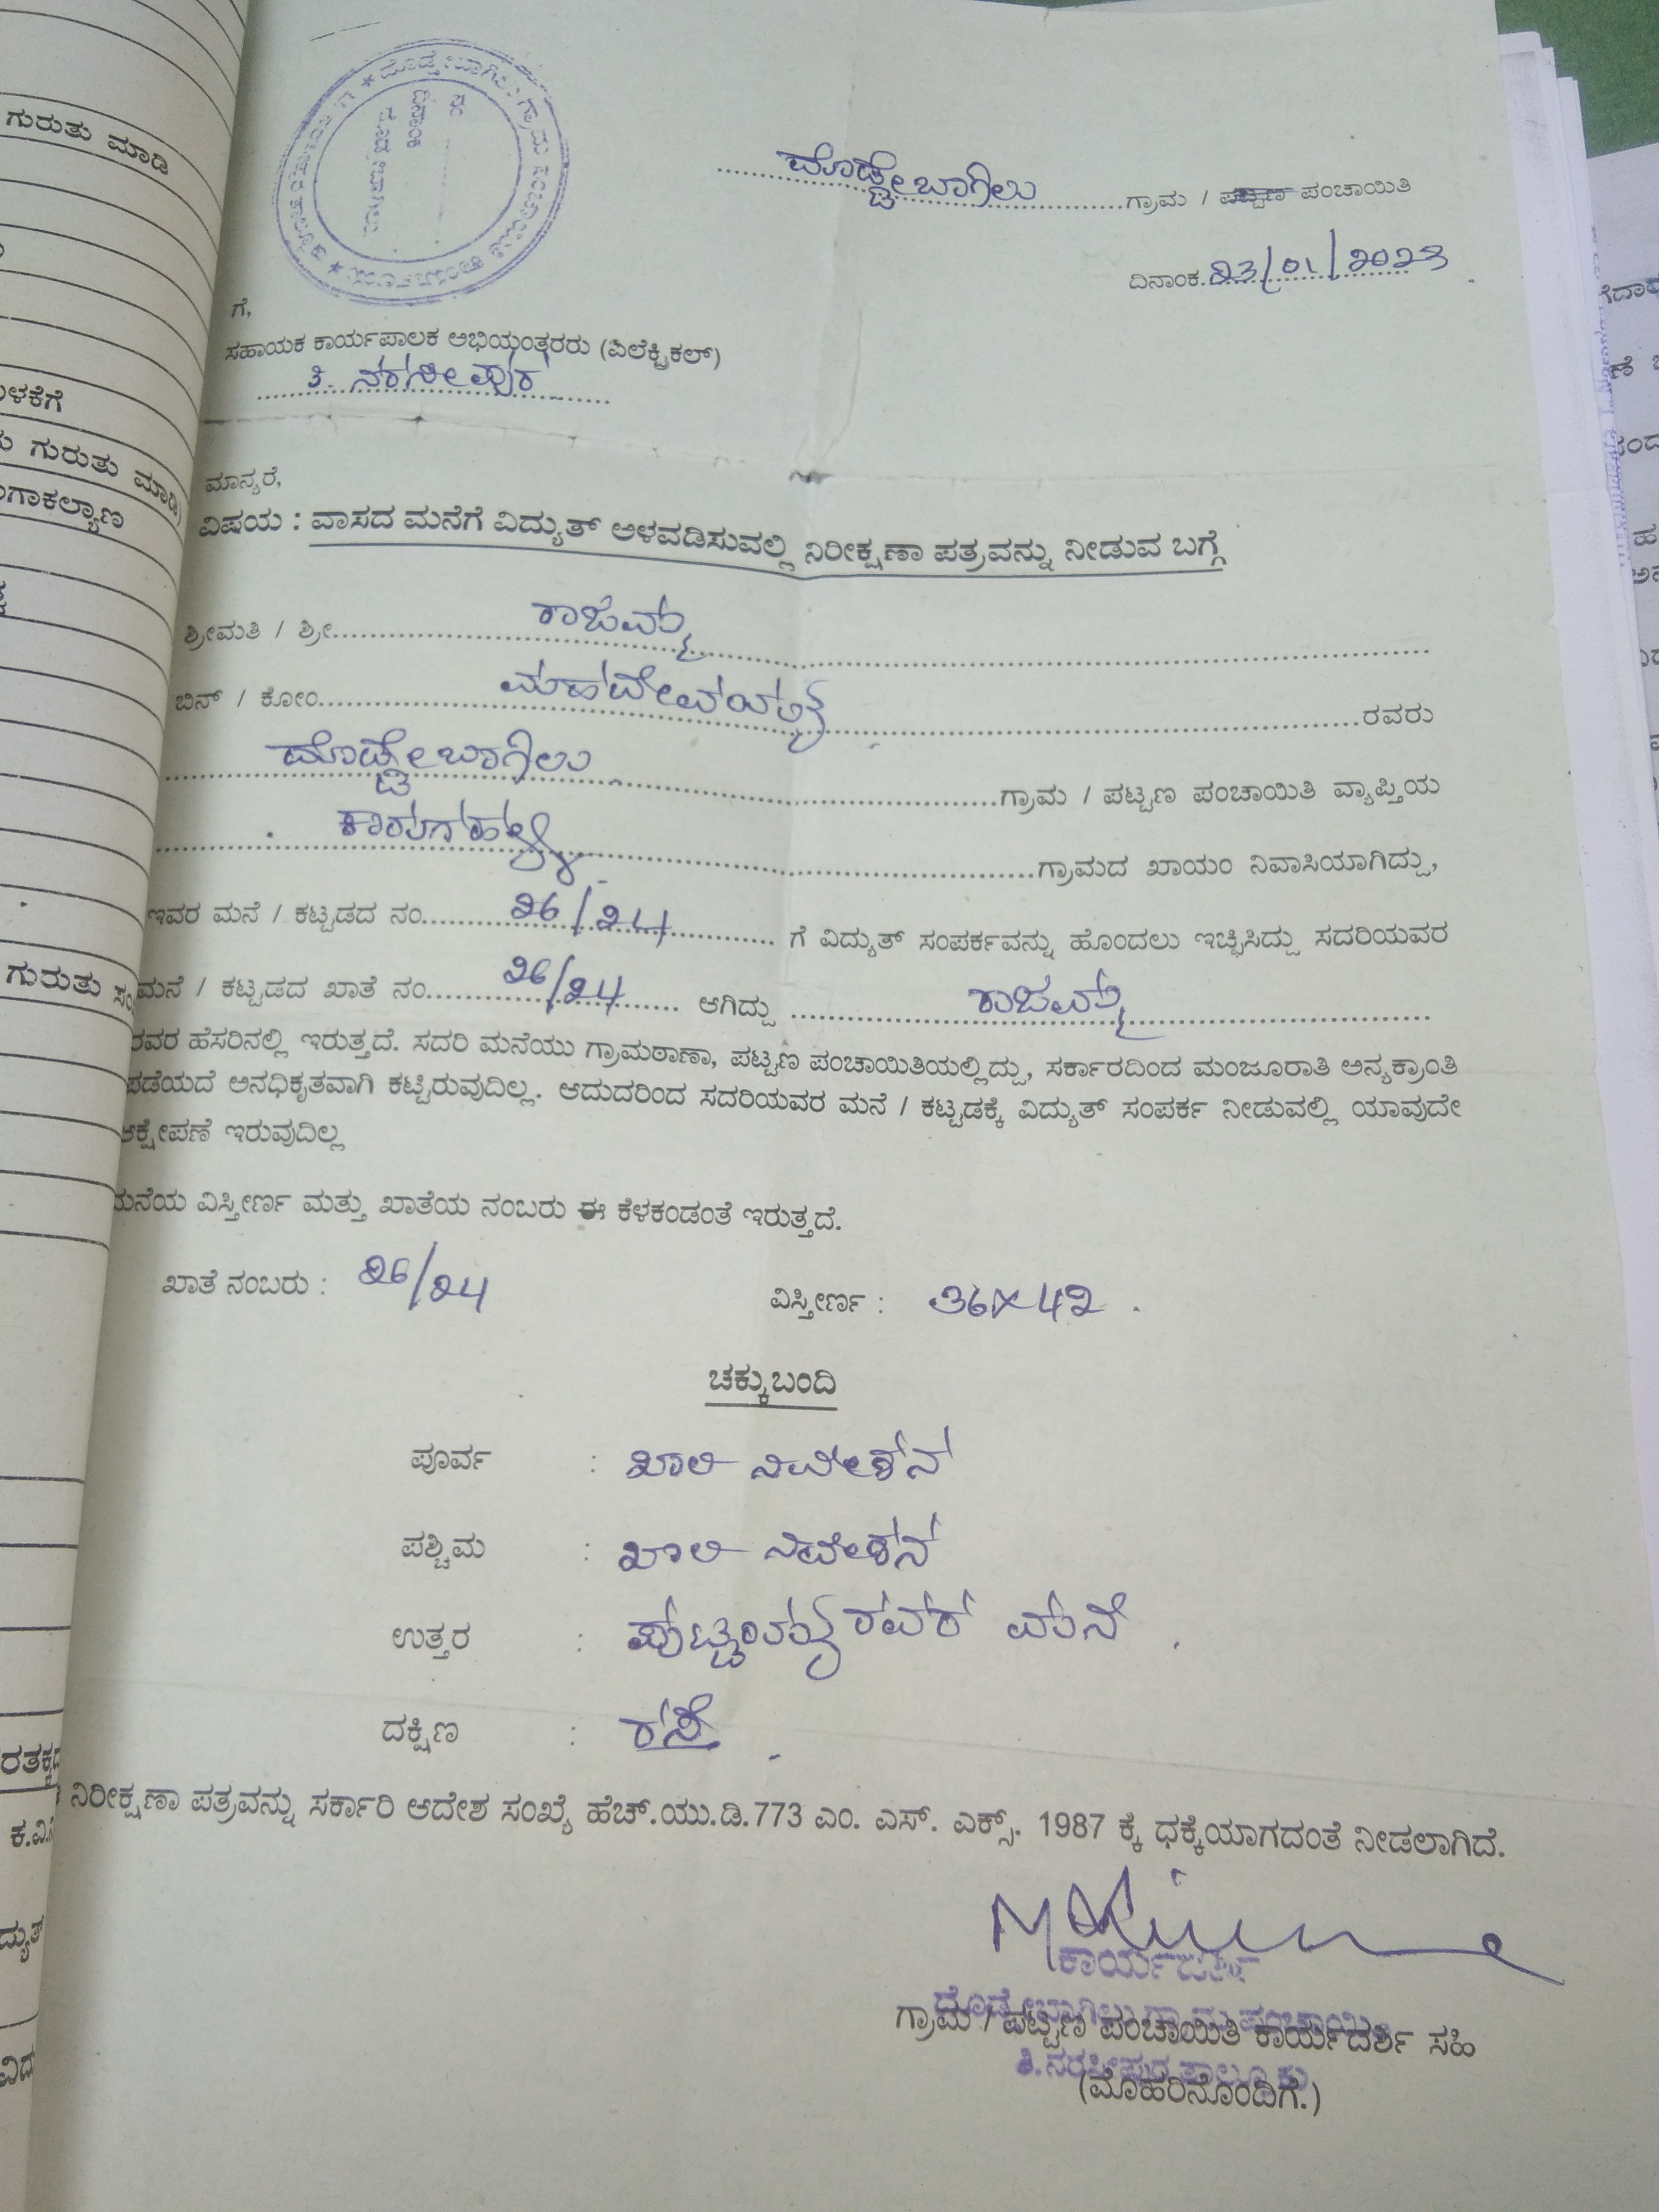 ದೊಡ್ಡೇಬಾಗಿಲು ಗ್ರಾಮ / ಪಟ್ಟಣ ಪಂಚಾಯಿತಿ
ದಿನಾಂಕ. 23/01/2023
ಗೆ,
ಸಹಾಯಕ ಕಾರ್ಯಪಾಲಕ ಅಭಿಯಂತರರು (ಎಲೆಕ್ಟ್ರಿಕಲ್)
ತಿ. ನರಸೀಪುರ
ಮಾನ್ಯರೆ,
ವಿಷಯ : ವಾಸದ ಮನೆಗೆ ವಿದ್ಯುತ್ ಅಳವಡಿಸುವಲ್ಲಿ ನಿರೀಕ್ಷಣಾ ಪತ್ರವನ್ನು ನೀಡುವ ಬಗ್ಗೆ
ಶ್ರೀಮತಿ / ಶ್ರೀ ರಾಜಮ್ಮ
ಬಿನ್ / ಕೋಂ ಮಹದೇವಯ್ಯ ರವರು
ದೊಡ್ಡೇಬಾಗಿಲು ಗ್ರಾಮ / ಪಟ್ಟಣ ಪಂಚಾಯಿತಿ ವ್ಯಾಪ್ತಿಯ
ಗ್ರಾಮದ ಖಾಯಂ ನಿವಾಸಿಯಾಗಿದ್ದು,
ಇವರ ಮನೆ / ಕಟ್ಟಡದ ನಂ. 26/24 ಗೆ ವಿದ್ಯುತ್ ಸಂಪರ್ಕವನ್ನು ಹೊಂದಲು ಇಚ್ಛಿಸಿದ್ದು ಸದರಿಯವರ
ಮನೆ / ಕಟ್ಟಡದ ಖಾತೆ ನಂ. 26/24 ಆಗಿದ್ದು ರಾಜಮ್ಮ
ರವರ ಹೆಸರಿನಲ್ಲಿ ಇರುತ್ತದೆ. ಸದರಿ ಮನೆಯು ಗ್ರಾಮಠಾಣಾ, ಪಟ್ಟಣ ಪಂಚಾಯಿತಿಯಲ್ಲಿದ್ದು, ಸರ್ಕಾರದಿಂದ ಮಂಜೂರಾತಿ ಅನ್ಯಕ್ರಾಂತಿ
ಪಡೆಯದೆ ಅನಧಿಕೃತವಾಗಿ ಕಟ್ಟಿರುವುದಿಲ್ಲ. ಆದುದರಿಂದ ಸದರಿಯವರ ಮನೆ / ಕಟ್ಟಡಕ್ಕೆ ವಿದ್ಯುತ್ ಸಂಪರ್ಕ ನೀಡುವಲ್ಲಿ ಯಾವುದೇ
ಆಕ್ಷೇಪಣೆ ಇರುವುದಿಲ್ಲ
ಮನೆಯ ವಿಸ್ತೀರ್ಣ ಮತ್ತು ಖಾತೆಯ ನಂಬರು ಈ ಕೆಳಕಂಡಂತೆ ಇರುತ್ತದೆ.
ಖಾತೆ ನಂಬರು : 26/24 ವಿಸ್ತೀರ್ಣ : 36×42
ಚಕ್ಕುಬಂದಿ
ಪೂರ್ವ : ಖಾಲಿ ನಿವೇಶನ
ಪಶ್ಚಿಮ : ಖಾಲಿ ನಿವೇಶನ
ಉತ್ತರ : ಪುಟ್ಟಯ್ಯರವರ ಮನೆ
ದಕ್ಷಿಣ : ರಸ್ತೆ
ನಿರೀಕ್ಷಣಾ ಪತ್ರವನ್ನು ಸರ್ಕಾರಿ ಆದೇಶ ಸಂಖ್ಯೆ ಹೆಚ್.ಯು.ಡಿ.773 ಎಂ. ಎಸ್. ಎಕ್ಸ್. 1987 ಕ್ಕೆ ಧಕ್ಕೆಯಾಗದಂತೆ ನೀಡಲಾಗಿದೆ.
ಗ್ರಾಮ / ಪಟ್ಟಣ ಪಂಚಾಯಿತಿ ಕಾರ್ಯದರ್ಶಿ ಸಹಿ
(ಮೊಹರಿನೊಂದಿಗೆ.)
ಗುರುತು ಮಾಡಿ
ಳಕೆಗೆ
ಗುರುತು ಮಾಡಿ
ಗಾಕಲ್ಯಾಣ
ಗುರುತು